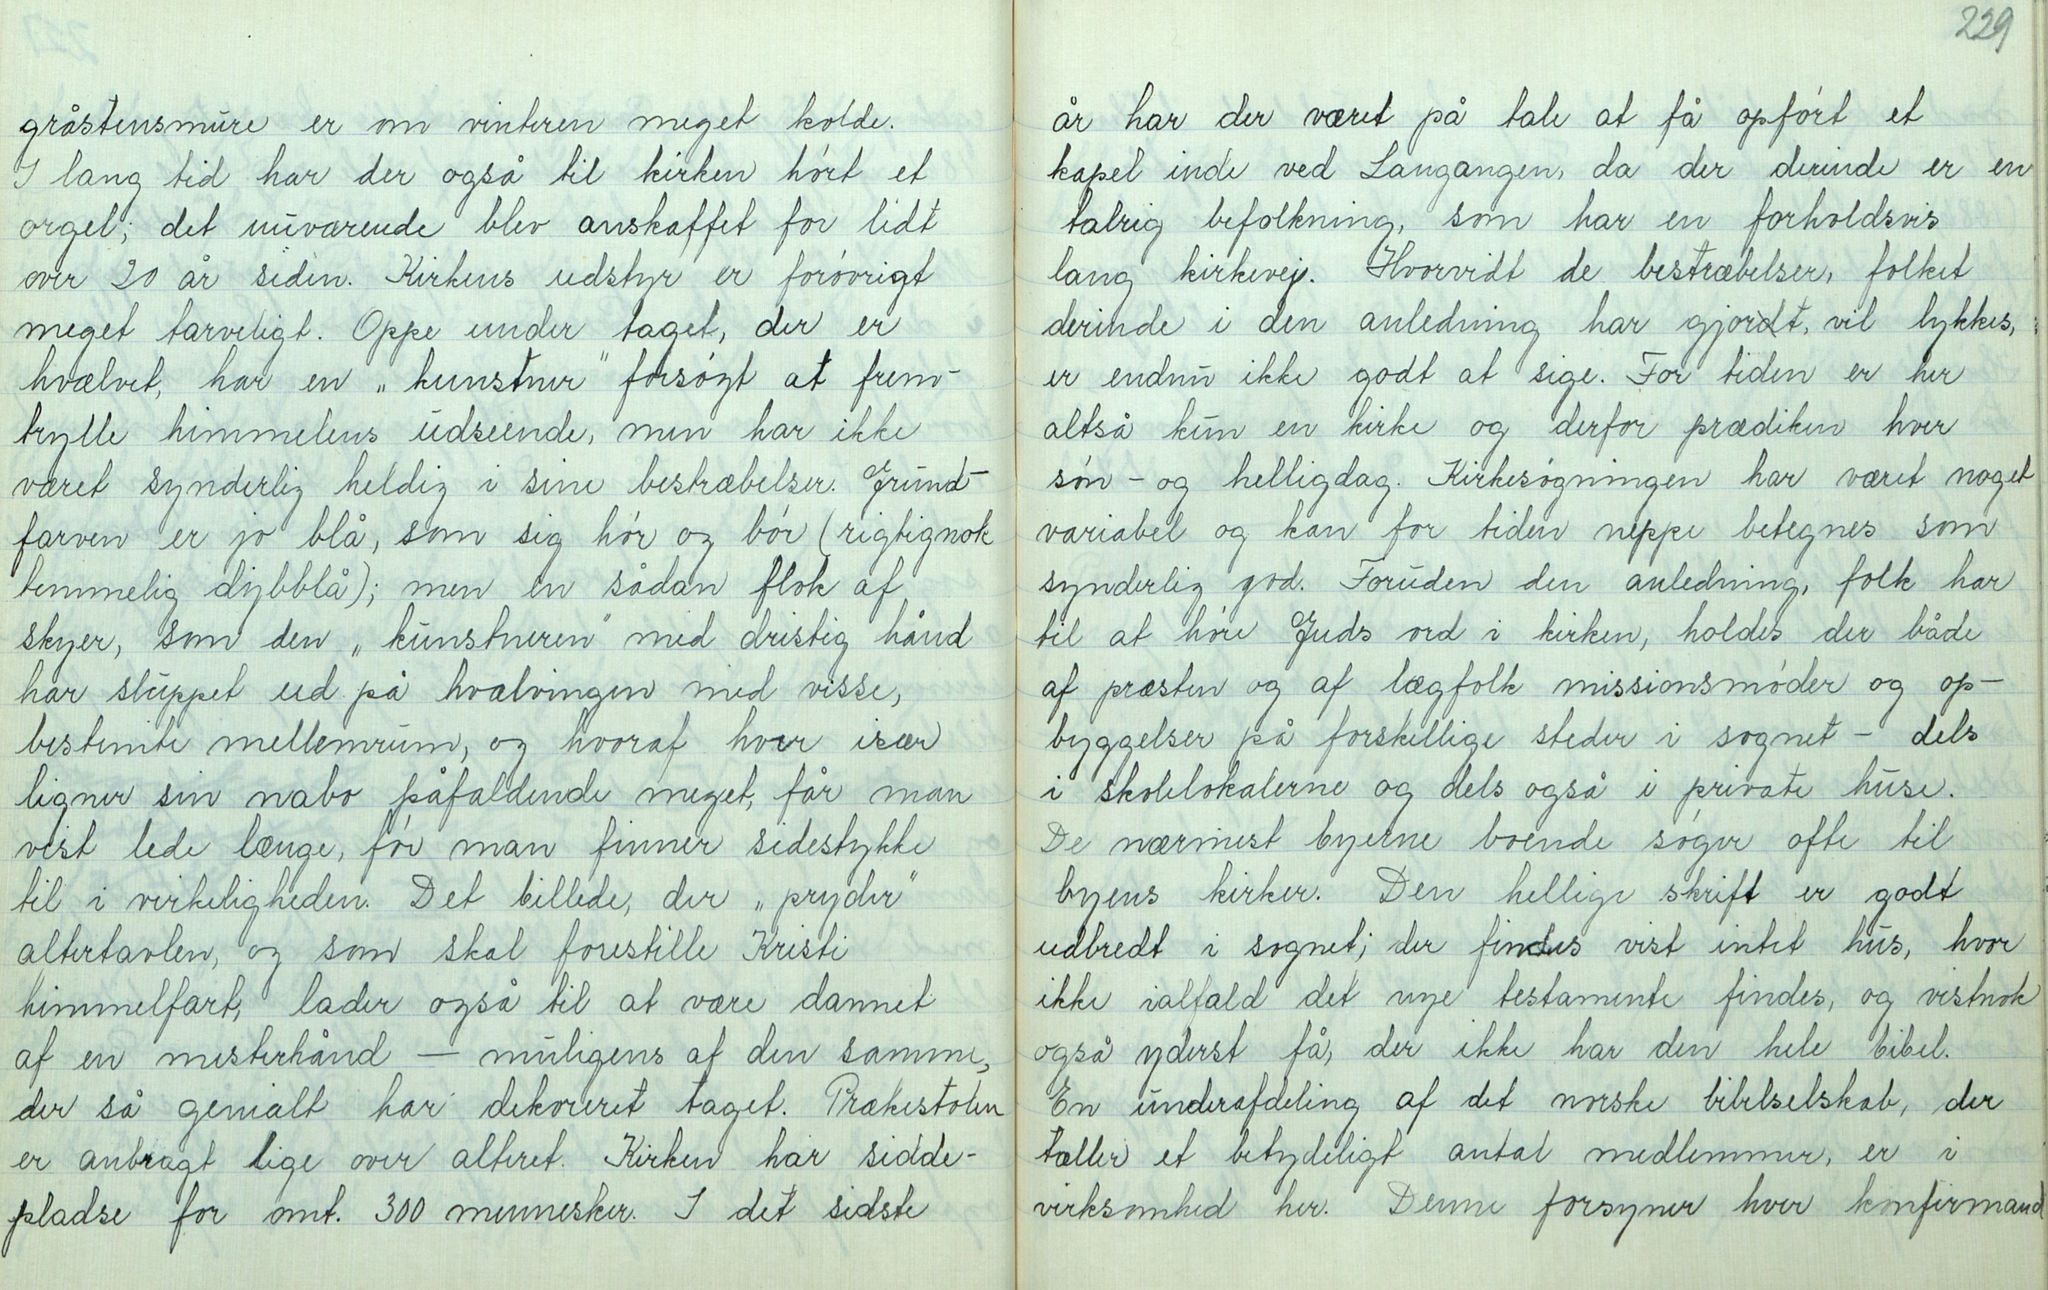 gråstensmure er om vinteren meget kolde.
I lang tid har der også til kirken hórt et
orgel; det nuværende blev anskaffet for lidt
over 20 år siden. Kirkens udstyr er foróvrigt
meget tarveligt. Oppe under taget, der er
hvælvet, har en „kunstner" forsógt at frem-
trylle himmelens udseende, men har ikke
været synderlig heldig i sine bestræbelser. Grund-
farven er jo blå, som sig hór og bór (rigtignok
temmelig dybblå); men en sådan flok af
skyer, som den „kunstneren" med dristig hånd
har sluppet ud på hvælvingen med visse,
bestemte mellemrum, og hvoraf hver især
ligner sin nabo påfaldende meget, får man
vist lede længe, fór man finner sidestykke
til i virkeligheden. Det billede, der „pryder"
altertavlen, og som skal forestille Kristi
himmelfart, lader også til at være dannet
af en mesterhånd — muligens af den samme,
der så genialt har dekoreret taget. Prækestolen
er anbragt lige over alteret. Kirken har sidde-
pladse for omt. 300 mennesker. I det sidste
229
år har der været på tale at få opfórt et
kapel inde ved Langangen, da der derinde er en
talrig befolkning, som har en forholdsvis
lang kirkevej. Hvorvidt de bestræbelser, folket
derinde i den anledning har gjordt, vil lykkes,
er endnu ikke godt at sige. For tiden er her
altså kun en kirke og derfor prædiken hver
són- og helligdag. Kirkesógningen har været noget
variabel og kan for tiden neppe betegnes som
synderlig god. Foruden den anledning, folk har
til at hóre Guds ord i kirken, holdes der både
af præsten og af lægfolk missionsmóder og op-
byggelser på forskellige steder i sognet - dels
i skolelokalerne og dels også i private huse.
De nærmest byerne boende sóger ofte til
byens kirker. Den hellige skrift er godt
udbredt i sognet; der findes vist intet hus, hvor
ikke ialfald det nye testamente findes, og vistnok
også yderst få, der ikke har den hele bibel.
En underafdeling af det norske bibelselskab, der
tæller et betydeligt antal medlemmer, er i
virksomhed her. Denne forsyner hver konfirmand